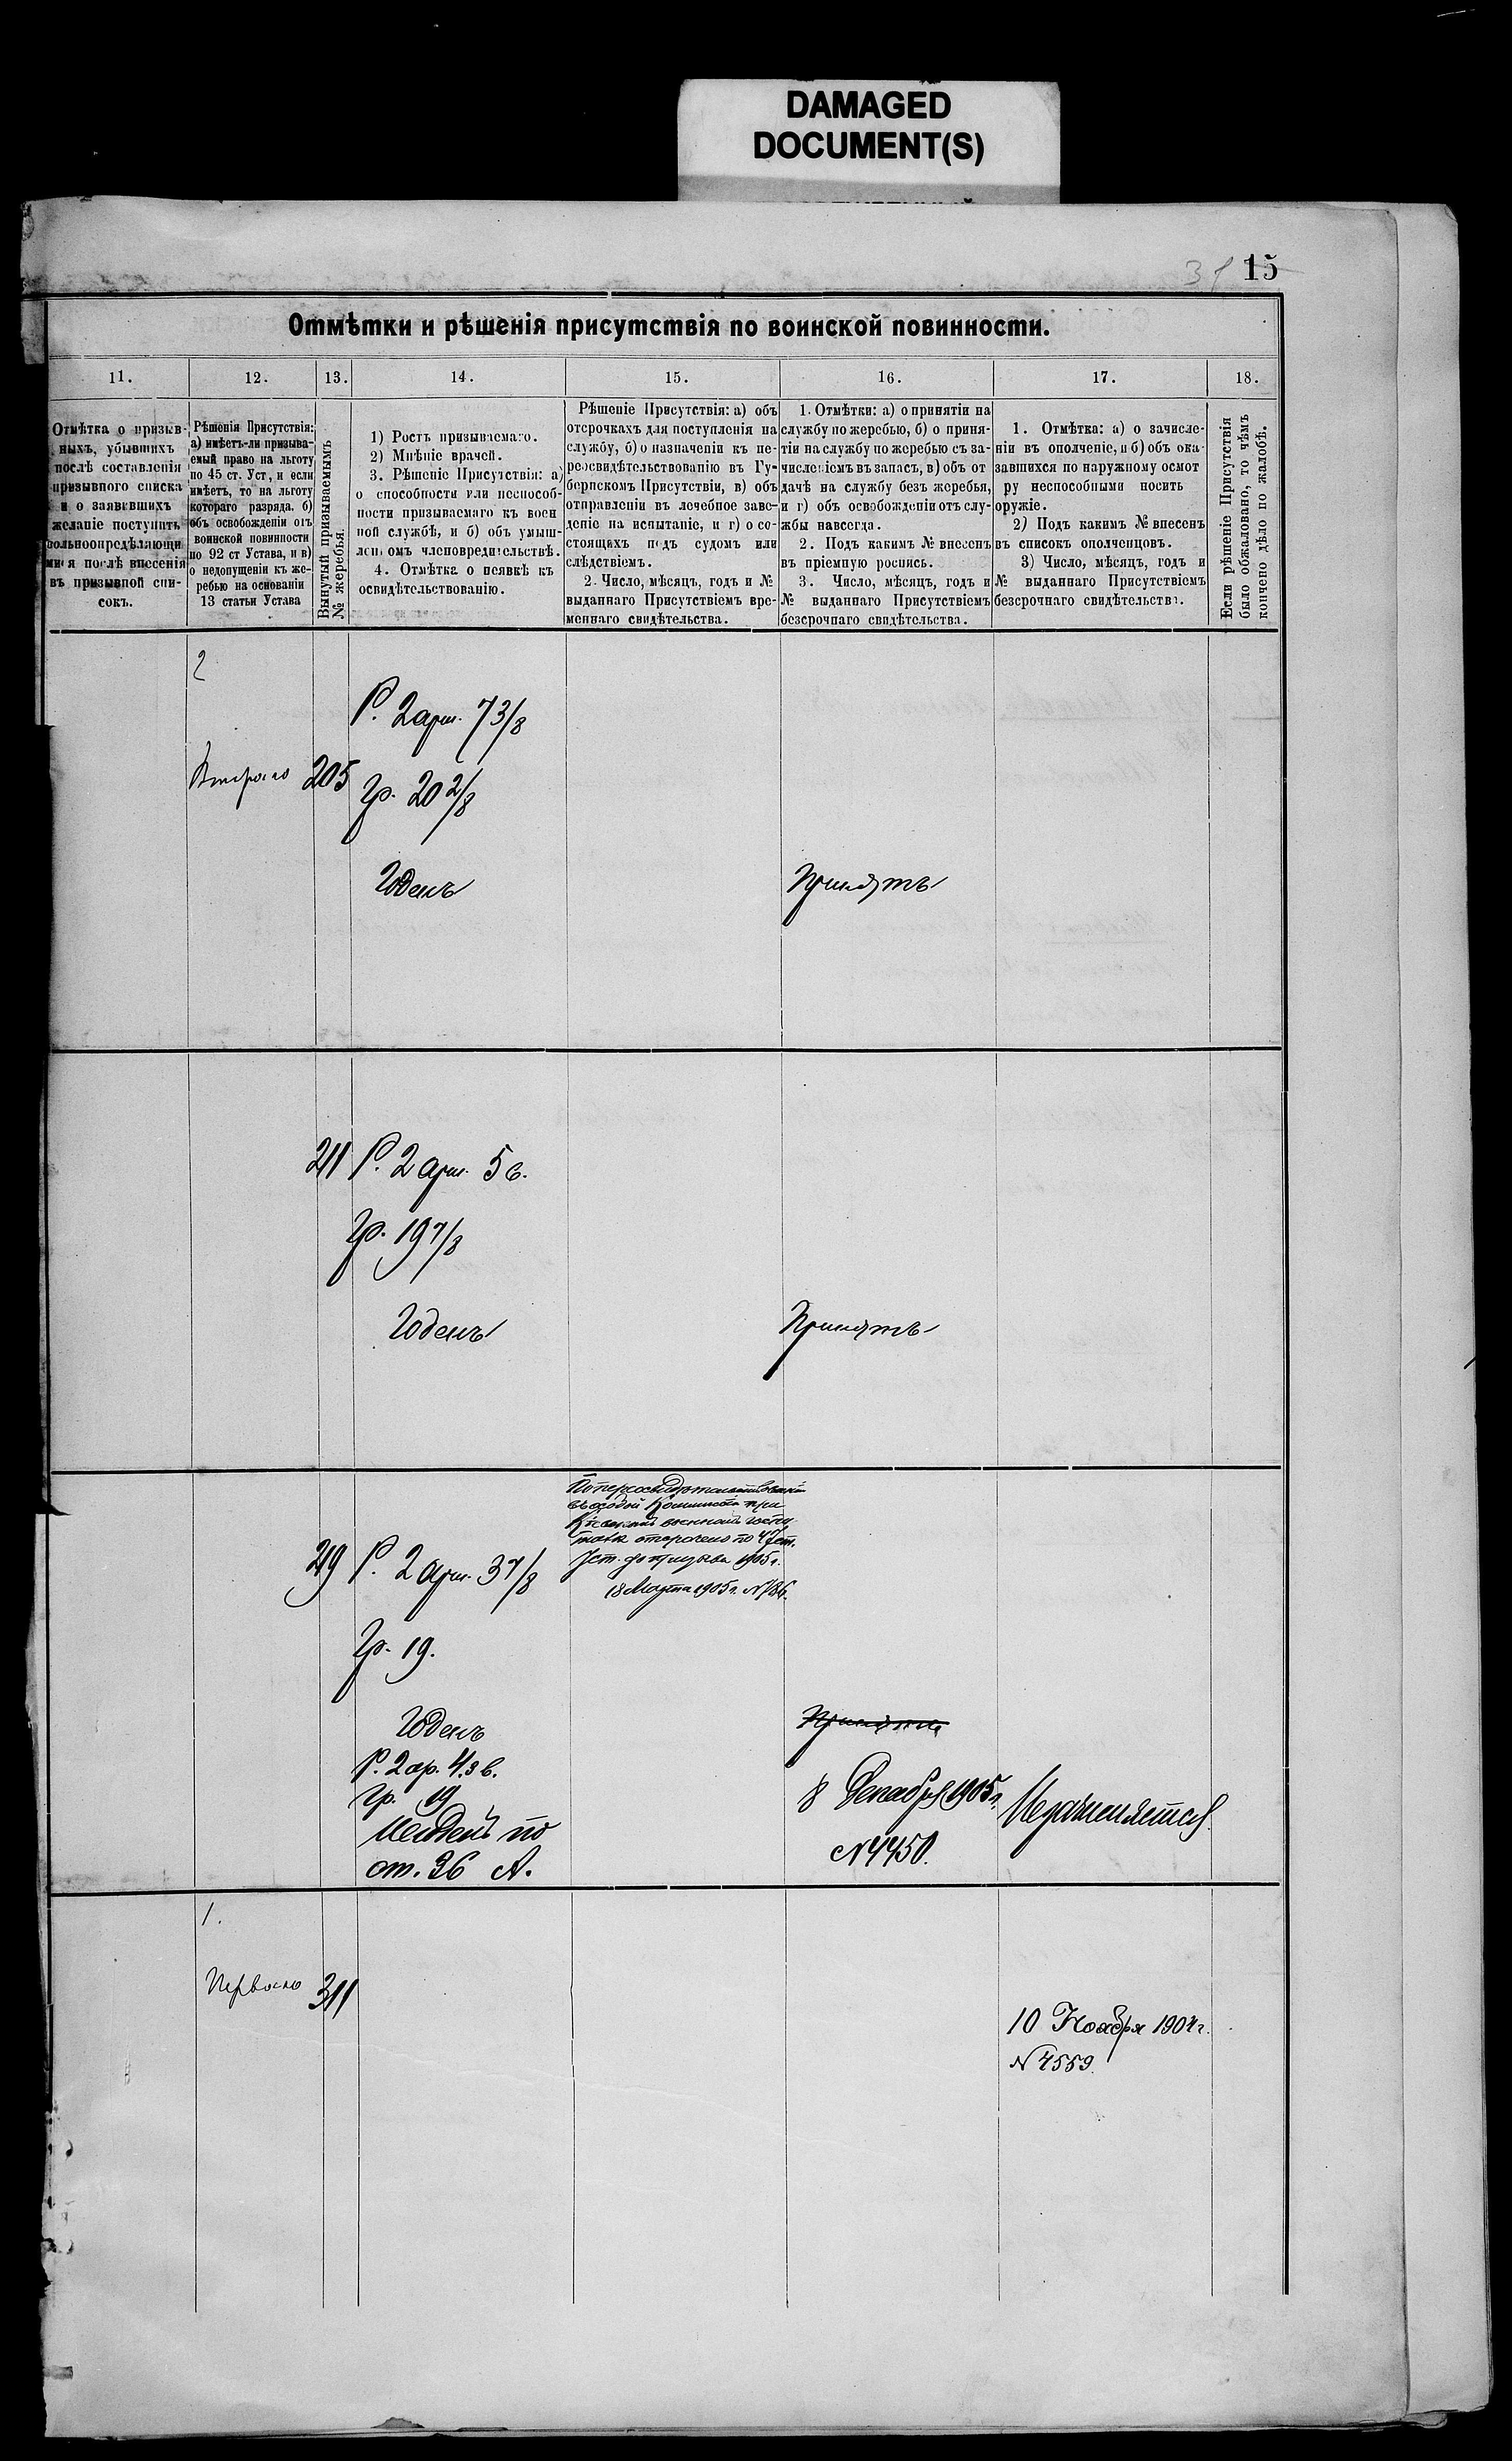 DAMAGED
DOCUMENT(S)
15
Отмѣтки и рѣшенія присутствія по воинской повинности.
11.
12.
13.
14.
15.
16.
17.
18.
Отмѣтка о призыв-
ныхъ, убывшихъ
послѣ составленія
призывного списка
и о заявившихъ
желаніе поступить
вольноопредѣляющи
мися послѣ внесенія
въ призывной спи-
сокъ.
Рѣшенія Присутствія:
а) имѣетъ-ли призыва-
емый право на льготу
по 45 ст. Уст, и если
имѣетъ, то на льготу
котораго разряда. б)
объ освобожденіи отъ
воинской повинности
по 92 ст Устава, и в)
о недопущеніи къ же-
ребью на основаніи
13 статьи Устава
Вынутый призываемымъ
№ жеребья.
1) Ростъ призываемаго.
2) Мнѣніе врачей.
3. Рѣшеніе Присутствія: а)
о способности или неспособ-
ности призываемаго къ воен
ной службѣ, и б) объ умыш-
леномъ членовредительствѣ.
4. Отмѣтка о неявкѣ къ
освидѣтельствованію.
Рѣшеніе Присутствія: а) объ
отсрочкахъ для поступленія на
службу, б) о назначеніи къ пе-
реосвидѣтельствованію въ Гу-
бернскомъ Присутствіи, в) объ
отправленіи въ лечебное заве-
деніе на испытаніе, и г) о со-
стоящихъ подъ судомъ или
слѣдствіемъ.
2. Число, мѣсяцъ, годъ и №
выданнаго Присутствіемъ вре-
меннаго свидѣтельства.
1. Отмѣтки: а) о принятіи на
службу по жеребью, б) о приня-
тіи на службу по жеребью съ за-
численіемъ въ запасъ, в) объ от
дачѣ на службу безъ жеребья,
и г) объ освобожденіи отъ слу-
жбы навсегда.
2. Подъ какимъ № внесенъ
въ пріемную роспись.
3. Число, мѣсяцъ, годъ и
№ выданнаго Присутствіемъ
безсрочнаго свидѣтельства.
1. Отмѣтка: а) о зачисле-
ніи въ ополченіе, и б) объ ока-
завшихся по наружному осмот
ру неспособными носить
оружіе.
2) Подъ какимъ № внесенъ
въ списокъ ополченцовъ.
3) Число, мѣсяцъ, годъ и
№ выданнаго Присутствіемъ
безсрочнаго свидѣтельства.
Если рѣшеніе Присутствія
было обжаловано, то чѣмъ
кончено дѣло по жалобѣ.
2
Второго
205
Р. 2 арш. 7 3/8
Гр. 20 2/8
Годенъ
Принятъ
211
Р. 2 арш. 5 в.
Гр. 19 7/8
Годенъ
Принятъ
По переосвидѣтельствованіи
въ особой Коммисіи при
Кіевскомъ военномъ госпи
талѣ отсрочено по 47 ст.
Уст. до призыва 1905 г.
18 Марта 1905 г. №
219
Р. 2 арш. 3 7/8
Гр. 19.
Годенъ
Р. 2 ар. 4.3 в.
Гр. 19
Негоденъ по
ст. 36 А.
Принятъ
8 Декабря 1905 г.
N 4450.
Не зачисляется
1.
Перваго
311
10 Ноября 1904 г.
N 4559.